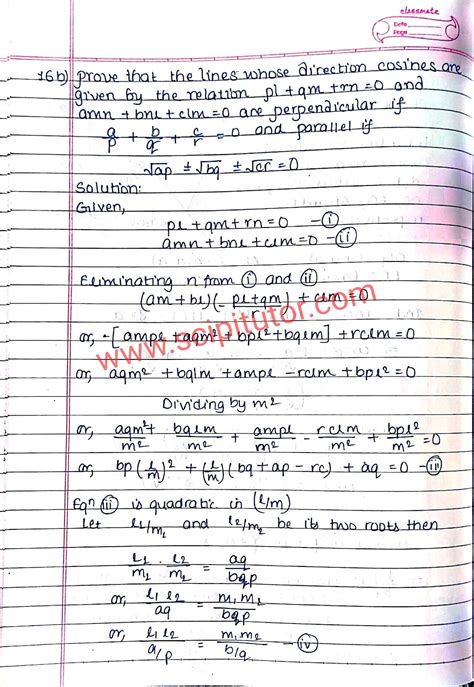 classmate
Date
Page
16b) prove that the lines whose direction cosines are
given by the relation pl + qm + rn = 0 and
amn + bnl + clm = 0 are perpendicular if
a/p + b/q + c/r = 0 and parallel if
√ap ± √bq ± √cr = 0
Solution:
Given,
pl + qm + rn = 0 - (i)
amn + bnl + clm = 0 - (ii)
Eliminating n from (i) and (ii)
(am + bl) {- pl + qm / r} + clm = 0
or, -[ampl + aqm² + bpl² + bqlm] + rclm = 0
or, aqm² + bqlm + ampl - rclm + bpl² = 0
Dividing by m²
or, aqm²/m² + bqlm/m² + ampl/m² - rclm/m² + bpl²/m² = 0
or, bp(l/m)² + (l/m)(bq + ap - rc) + aq = 0 - (iii)
Eqn (iii) is quadratic in (l/m)
Let l1/m1 and l2/m2 be its two roots then
l1/m1 . l2/m2 = aq/bqp
or, l1 l2/aq = m1 m2/bqp
or, l1 l2/a/p = m1 m2/b/q - (iv)
www.scipitutor.com